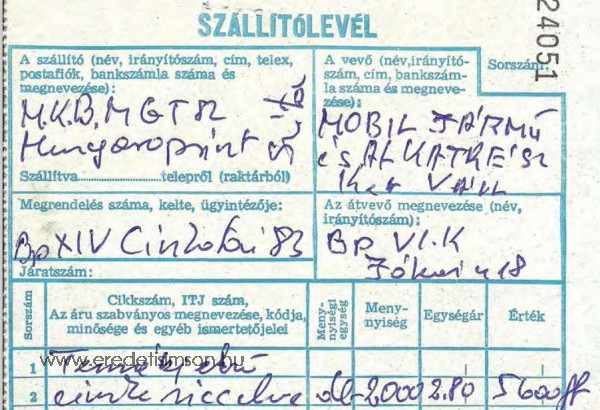 SZÁLLÍTÓLEVÉL
24051
A szállító (név, irányítószám, cím, telex,
postafiók, bankszámla száma és
megnevezése):
M.K.B. MGTSZ
Hungaroprint
Szállítva.....................telepről (raktárból)
A vevő (név,irányító-
szám, cím, bankszám-
la száma és megneve-
zése):
MOBIL JÁRMŰ
és ALKATRÉSZ
Ker. VÁLL
Sorszám:
Megrendelés száma, kelte, ügyintézője:
Bp XIV Cinkotai 83
Járatszám:
Az átvevő megnevezése (név,
irányítószám):
Bp VI. K
Jókai u 18
Sorszám
Cikkszám, ITJ szám,
Az áru szabványos megnevezése, kódja,
minősége és egyéb ismertetőjelei
Meny-
nyiségi
egység
Meny-
nyiség
Egységár
Érték
1
www.eredetisimson.hu
2 db 2,000 2.80 5600 Ft